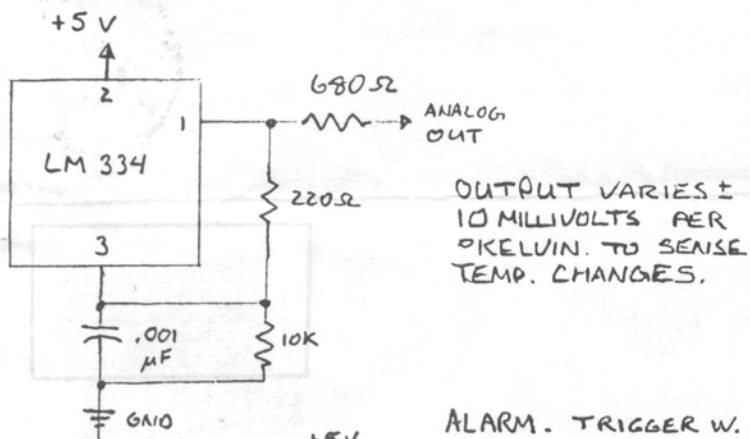 +5 V
2
680Ω
1
ANALOG
OUT
LM 334
220Ω
OUTPUT VARIES ±
10 MILLIVOLTS PER
°KELVIN. TO SENSE
TEMP. CHANGES.
3
.001
μF
10K
GND
+5V
ALARM. TRIGGER W.